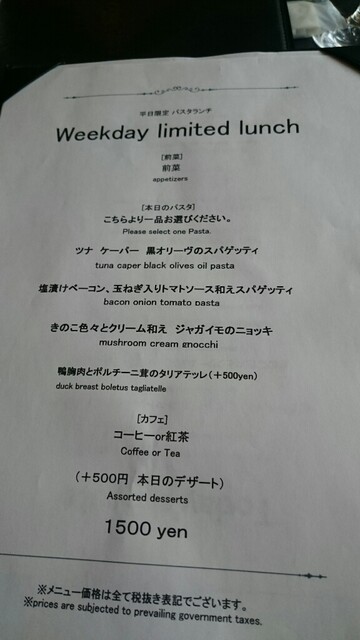 平日限定 パスタランチ
Weekday limited lunch
[前菜]
前菜
appetizers
[本日のパスタ]
こちらより一品お選びください。
Please select one Pasta.
ツナ ケーパー 黒オリーヴのスパゲッティ
tuna caper black olives oil pasta
塩漬けベーコン、玉ねぎ入りトマトソース和えスパゲティ
bacon onion tomato pasta
きのこ色々とクリーム和え ジャガイモのニョッキ
mushroom cream gnocchi
鴨胸肉とポルチーニ茸のタリアテッレ(+500yen)
duck breast boletus tagliatelle
[カフェ]
コーヒーor紅茶
Coffee or Tea
(+500円 本日のデザート)
Assorted desserts
1500 yen
※メニュー価格は全て税抜き表記でございます。
※prices are subjected to prevailing government taxes.